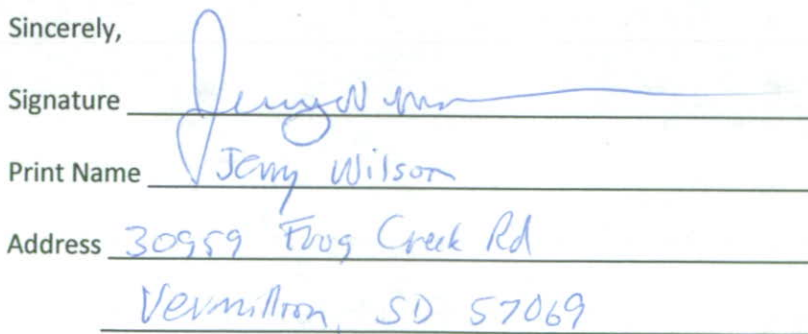 Sincerely,
Signature Jerry Wilson
Print Name Jerry Wilson
Address 30959 Frog Creek Rd
Vermillion, SD 57069